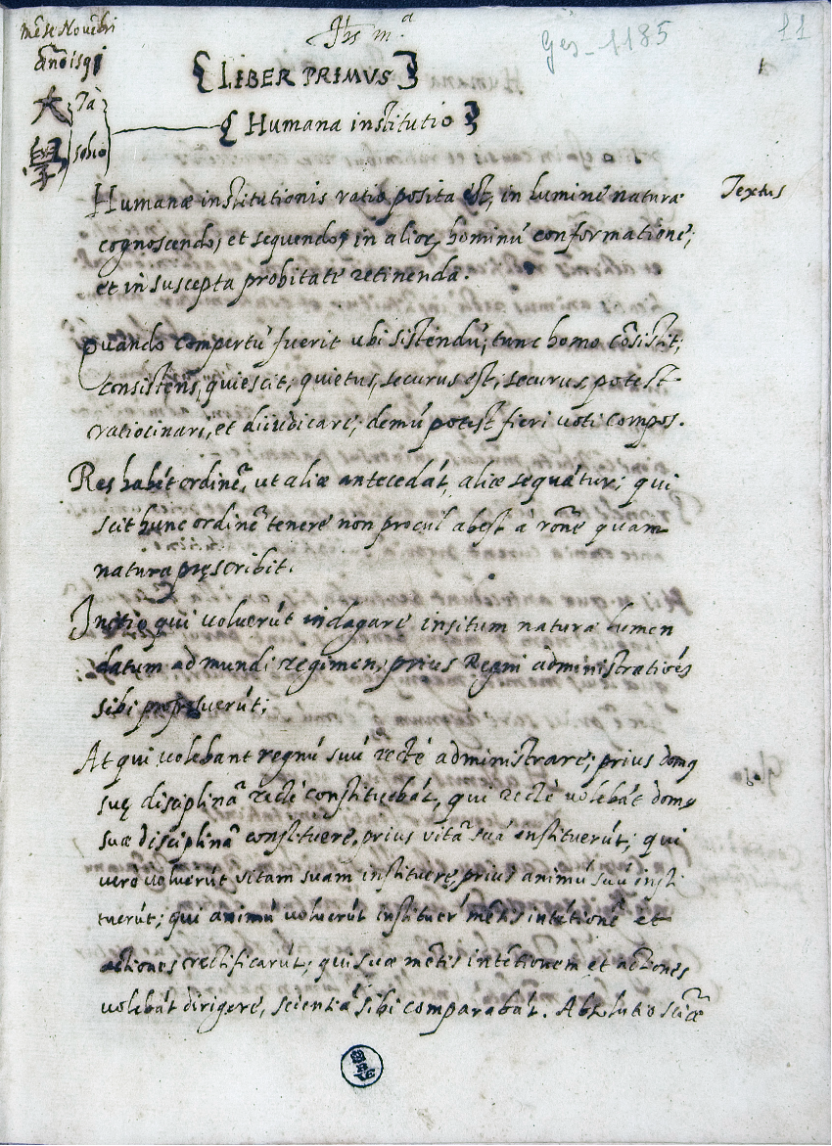 mēse Novēbri
Jhs mᵃ
Ges. 1185
11
1
āno 1591
{LIBER PRIMVS}
大 Ta
{Humana institutio}
學 schio
Humanæ institutionis ratio posita est, in lumine naturæ
Textus
cognoscendo, et sequendo; in aliorū hominū conformatione;
et in suscepta probitate retinenda.
Quando compertū fuerit ubi sistendū, tunc homo cōsistit;
consistens, quiescit, quietus, securus est, securus potest
ratiocinari, et diiudicare; demū potest fieri voti compos.
Res habēt ordinē, ut aliæ antecedāt, aliæ sequātur; qui
scit hunc ordinē tenere non procul abest á rōne quam
natura pręscribit.
Initio qui voluerūt indagare insitum naturæ lumen
datum ad mundi regimen, prius Regni administrationes
sibi proposuerūt;
At qui volebant regnū suū recte administrare; prius domū
suę disciplinā recte constituebāt, qui recte volebāt domū
suæ disciplinā constituere, prius vitā suā instituerūt; qui
vero voluerūt vitam suam instituere, prius animū suū insti
tuerūt; qui animū voluerūt instituere mētis intētionē et
actiones rectificarūt; qui suæ mētis intētionem et actiones
volebāt dirigere, scientiā sibi comparabāt. Absolutio sciē